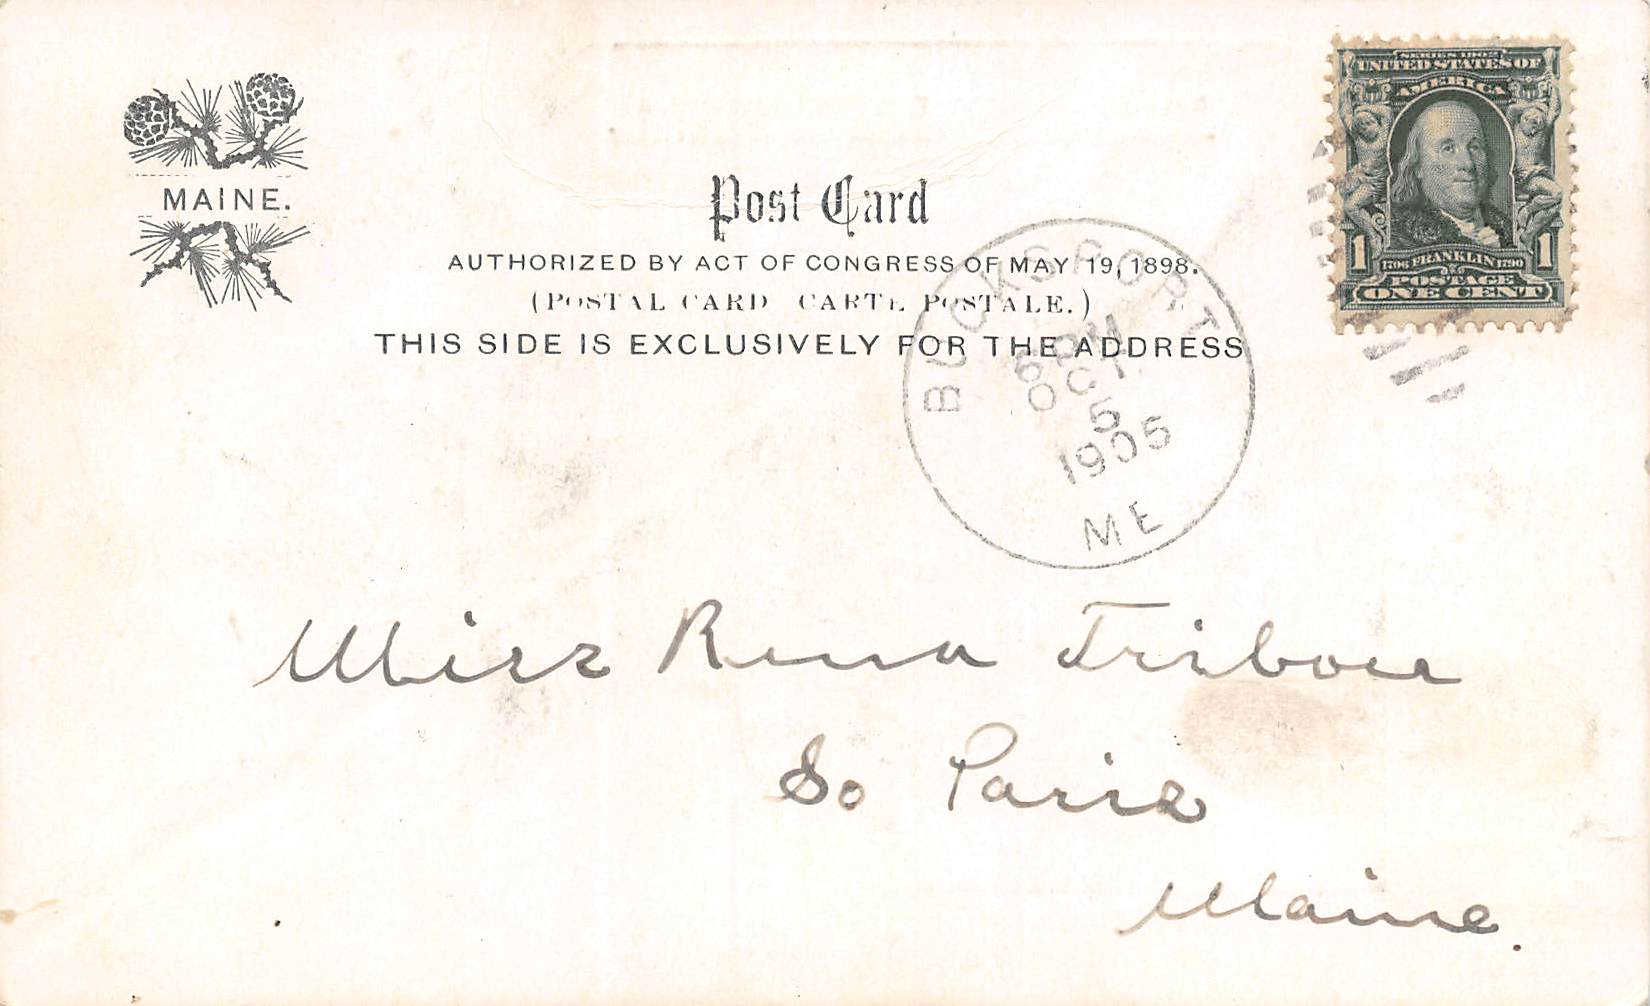 MAINE.
Post Card
AUTHORIZED BY ACT OF CONGRESS OF MAY 19, 1898.
(POSTAL CARD CARTE POSTALE.)
THIS SIDE IS EXCLUSIVELY FOR THE ADDRESS
SERIES 1902
UNITED STATES OF
AMERICA
1 1
1706 FRANKLIN 1790
POSTAGE
ONE CENT
BUCKSPORT
6 PM
OCT
5
1905
ME
Miss Rena Tribou
So Paris
Maine.